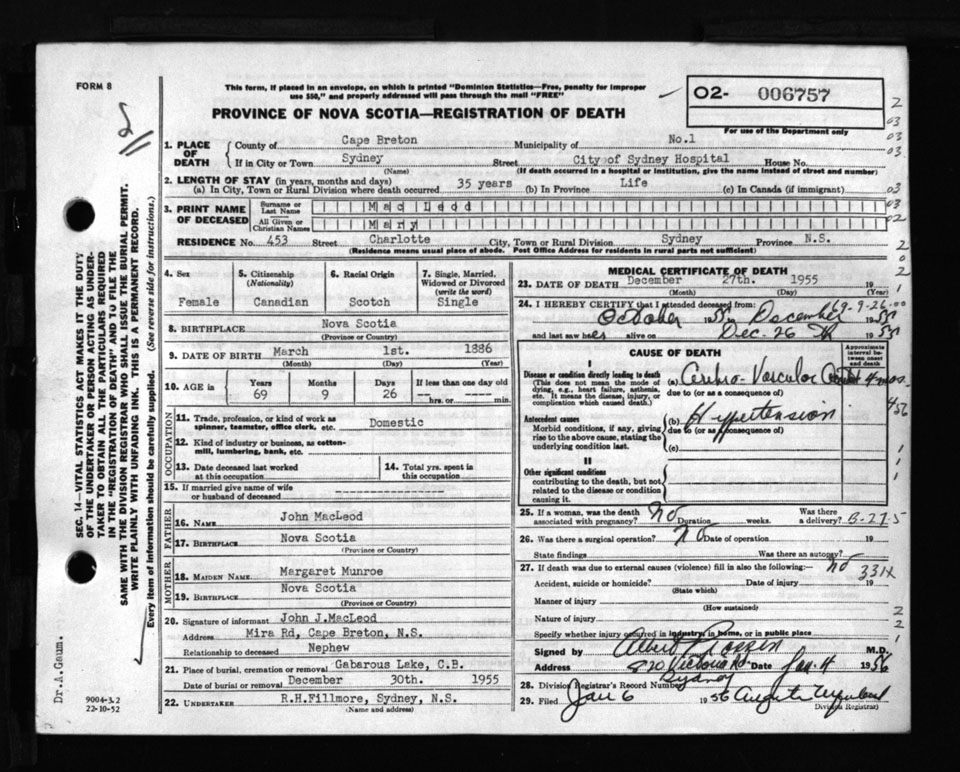 FORM 8
This form, if placed in an envelope, on which is printed "Dominion Statistics—Free, penalty for improper
use $50," and properly addressed will pass through the mail "FREE"
PROVINCE OF NOVA SCOTIA—REGISTRATION OF DEATH
02- 006757
For use of the Department only
1. PLACE OF DEATH
County of Cape Breton Municipality of No.1
If in City or Town Sydney Street City of Sydney Hospital House No.
(Name) (If death occurred in a hospital or institution, give the name instead of street and number)
2. LENGTH OF STAY (in years, months and days)
(a) In City, Town or Rural Division where death occurred 35 years (b) In Province Life (c) In Canada (if immigrant)
3. PRINT NAME OF DECEASED
Surname or Last Name Mac Leod
All Given or Christian Names Mary
RESIDENCE No. 453 Street Charlotte City, Town or Rural Division Sydney Province N.S.
(Residence means usual place of abode. Post Office Address for residents in rural parts not sufficient)
4. Sex Female
5. Citizenship (Nationality) Canadian
6. Racial Origin Scotch
7. Single, Married, Widowed or Divorced (write the word) Single
8. BIRTHPLACE Nova Scotia
(Province or Country)
9. DATE OF BIRTH March 1st. 1886
(Month) (Day) (Year)
10. AGE in Years 69 Months 9 Days 26 If less than one day old hrs. or min.
OCCUPATION
11. Trade, profession, or kind of work as spinner, teamster, office clerk, etc. Domestic
12. Kind of industry or business, as cotton-mill, lumbering, bank, etc.
13. Date deceased last worked at this occupation
14. Total yrs. spent in this occupation
15. If married give name of wife or husband of deceased ------------------
FATHER
16. NAME John MacLeod
17. BIRTHPLACE Nova Scotia
(Province or Country)
MOTHER
18. MAIDEN NAME Margaret Munroe
19. BIRTHPLACE Nova Scotia
(Province or Country)
20. Signature of informant John J.MacLeod
Address Mira Rd, Cape Breton, N.S.
Relationship to deceased Nephew
21. Place of burial, cremation or removal Gabarous Lake, C.B.
Date of burial or removal December 30th. 1955
22. UNDERTAKER R.H.Fillmore, Sydney, N.S.
(Name and address)
MEDICAL CERTIFICATE OF DEATH
23. DATE OF DEATH December 27th. 1955 19
(Month) (Day) (Year)
24. I HEREBY CERTIFY that I attended deceased from: 69-9-26-00
October 1955 to December 1955
and last saw her alive on Dec. 26 th 1955
CAUSE OF DEATH
Approximate interval between onset and death
I
Disease or condition directly leading to death
(This does not mean the mode of dying, e.g., heart failure, asthenia, etc. It means the disease, injury, or complication which caused death.)
(a) Cerebro-Vascular 4 mos.
due to (or as a consequence of)
Antecedent causes
Morbid conditions, if any, giving rise to the above cause, stating the underlying condition last.
(b) Hypertension
due to (or as a consequence of)
(c)
II
Other significant conditions
contributing to the death, but not related to the disease or condition causing it.
25. If a woman, was the death associated with pregnancy? No Duration weeks. Was there a delivery? B-27-5
26. Was there a surgical operation? No Date of operation 19
State findings Was there an autopsy?
27. If death was due to external causes (violence) fill in also the following:— no 331X
Accident, suicide or homicide? Date of injury 19
(State which)
Manner of injury
(How sustained)
Nature of injury
Specify whether injury occurred in industry, in home, or in public place
Signed by Albert M.D.
Address 820 Victoria Rd Date Jan 4 1956
Sydney
28. Division Registrar's Record Number
29. Filed Jan 6 1956
Division Registrar
SEC. 14—VITAL STATISTICS ACT MAKES IT THE DUTY
OF THE UNDERTAKER OR PERSON ACTING AS UNDER-
TAKER TO OBTAIN ALL THE PARTICULARS REQUIRED
IN THE "REGISTRATION OF DEATH" AND TO FILE THE
SAME WITH THE DIVISION REGISTRAR WHO SHALL ISSUE THE BURIAL PERMIT.
WRITE PLAINLY WITH UNFADING INK. THIS IS A PERMANENT RECORD.
Every item of information should be carefully supplied. (See reverse side for instructions.)
Dr.A.Gaum.
9004-3.2
22-10-52